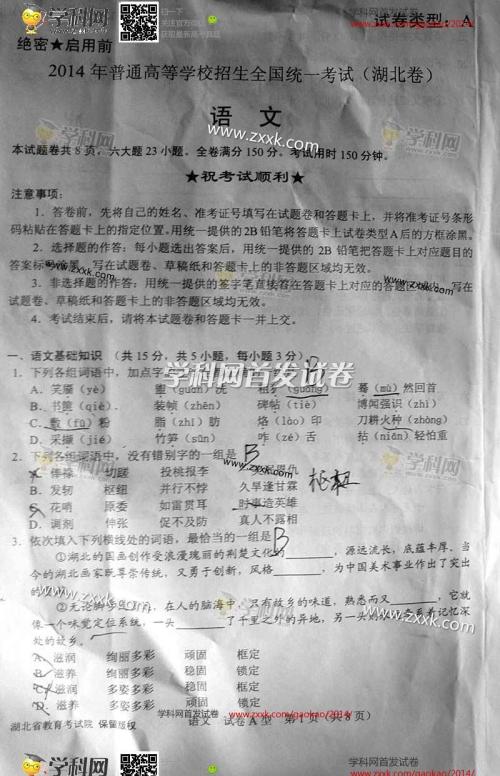 学科网首发试卷
www.zxxk.com/gaokao/2014/
试卷类型：A
绝密★启用前
2014年普通高等学校招生全国统一考试（湖北卷）
语 文
www.zxxk.com
本试题卷共8页，六大题23小题。全卷满分150分。考试用时150分钟。
★祝考试顺利★
注意事项：
1．答卷前，先将自己的姓名、准考证号填写在试题卷和答题卡上，并将准考证号条形
码粘贴在答题卡上的指定位置。用统一提供的2B铅笔将答题卡上试卷类型A后的方框涂黑。
2．选择题的作答：每小题选出答案后，用统一提供的2B铅笔把答题卡上对应题目的
答案标号涂黑。写在试题卷、草稿纸和答题卡上的非答题区域均无效。
3．非选择题的作答：用统一提供的签字笔直接答在答题卡上对应的答题区域内。写在
试题卷、草稿纸和答题卡上的非答题区域均无效。
4．考试结束后，请将本试题卷和答题卡一并上交。
一、语文基础知识（共15分，共5小题，每小题3分）
学科网首发试卷
1．下列各组词语中，加点字
A．笑靥（yè） （guàn） （guāng） 蓦（mù）然回首
B．书箧（qiè） 装帧（zhēn） 碑帖（tiè） 博闻强识（zhì）
C．敷（fū）粉 脂（zhī）肪 烙（lào）印 刀耕火种（zhòng）
D．采撷（jié） 竹笋（sǔn） 咋（zé）舌 拈（niān）轻怕重
2．下列各组词语中，没有错别字的一组是 B
A．俸禄 投桃报李
B．发轫 枢纽 并行不悖 久旱逢甘霖
C．花哨 原委 如雷贯耳 时事造英雄
D．调剂 伸张 促不及防 真人不露相
3．依次填入下列横线处的词语，最恰当的一组是 B
①湖北的国画创作受浪漫瑰丽的荆楚文化的________，源远流长，底蕴丰厚。当
今的湖北画家既尊崇传统，又勇于创新，风格________，为中国美术事业作出了突出
的
②无论脚步 ，在人的脑海中，只有故乡的味道，熟悉而又________，它就
像一个味觉定位系统，一头________了千里之外的异地，另一头 记忆深
处的故乡。
A．滋润 绚丽多彩 顽固 框定
B．滋养 绚丽多彩 稳固 锁定
C．滋润 多姿多彩 稳固 框定
D．滋养 多姿多彩 顽固 锁定
湖北省教育考试院 保留版权
学科网首发试卷
语文 试卷A型 第1页（共8页）
www.zxxk.com/gaokao/2014/